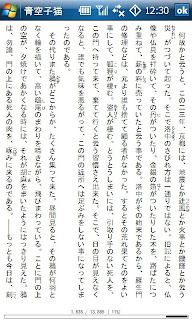 青空子猫 12:30 ok
何故かと云うと、この二三年、京都には、地震とか辻風とか火事とか饑饉とか云う
災がつづいて起った。そこで洛中のさびれ方は一通りではない。旧記によると、仏
像や仏具を打砕いて、その丹がついたり、金銀の箔がついたりした木を、路ばたにつ
み重ねて、薪の料に売っていたと云う事である。洛中がその始末であるから、羅生門
の修理などは、元より誰も捨てて顧る者がなかった。するとその荒れ果てたのをよい
事にして、狐狸が棲む。盗人が棲む。とうとうしまいには、引取り手のない死人を、
この門へ持って来て、棄てて行くと云う習慣さえ出来た。そこで、日の目が見えなくな
ると、誰でも気味を悪るがって、この門の近所へは足ぶみをしない事になってしま
ったのである。
その代りまた鴉がどこからか、たくさん集って来た。昼間見ると、その鴉が何羽と
なく輪を描いて、高い鴟尾のまわりを啼きながら、飛びまわっている。ことに門の上
の空が、夕焼けであかくなる時には、それが胡麻をまいたようにはっきり見えた。鴉
は、勿論、門の上にある死人の肉を、啄みに来るのである。――もっとも今日は、刻